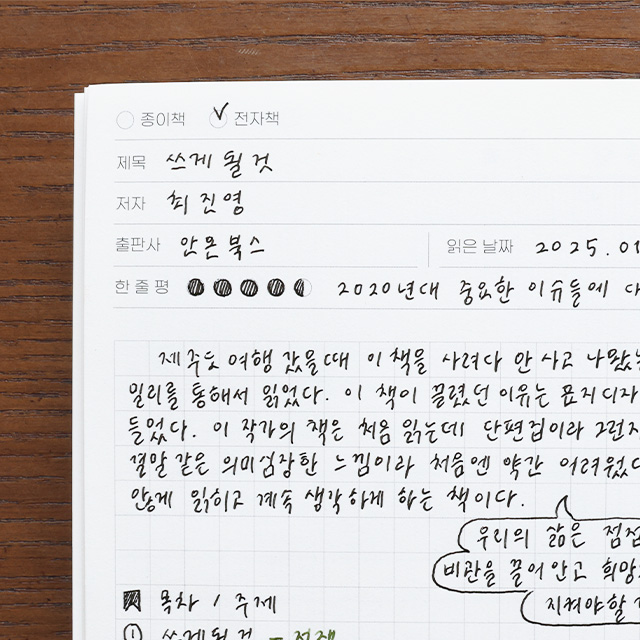 종이책 전자책
제목 쓰게 될 것
저자 최진영
출판사 안온북스 읽은 날짜 2025.01
한 줄 평 2020년대 중요한 이슈들에
제주도 여행 갔을때 이 책을 사려다 안 사고
일리를 통해서 읽었다. 이 책이 끌렸던 이유는 표지디자
들었다. 이 작가의 책은 처음 읽는데 단편집이라 그런지
결말 같은 의미심장한 느낌이라 처음엔 약간 어려웠
읽히고 계속 생각하게 하는 책이다.
우리의 삶은
비관을 끌어안고 희망
지켜야할
목차 / 주제
① 쓰게될것 - 전쟁